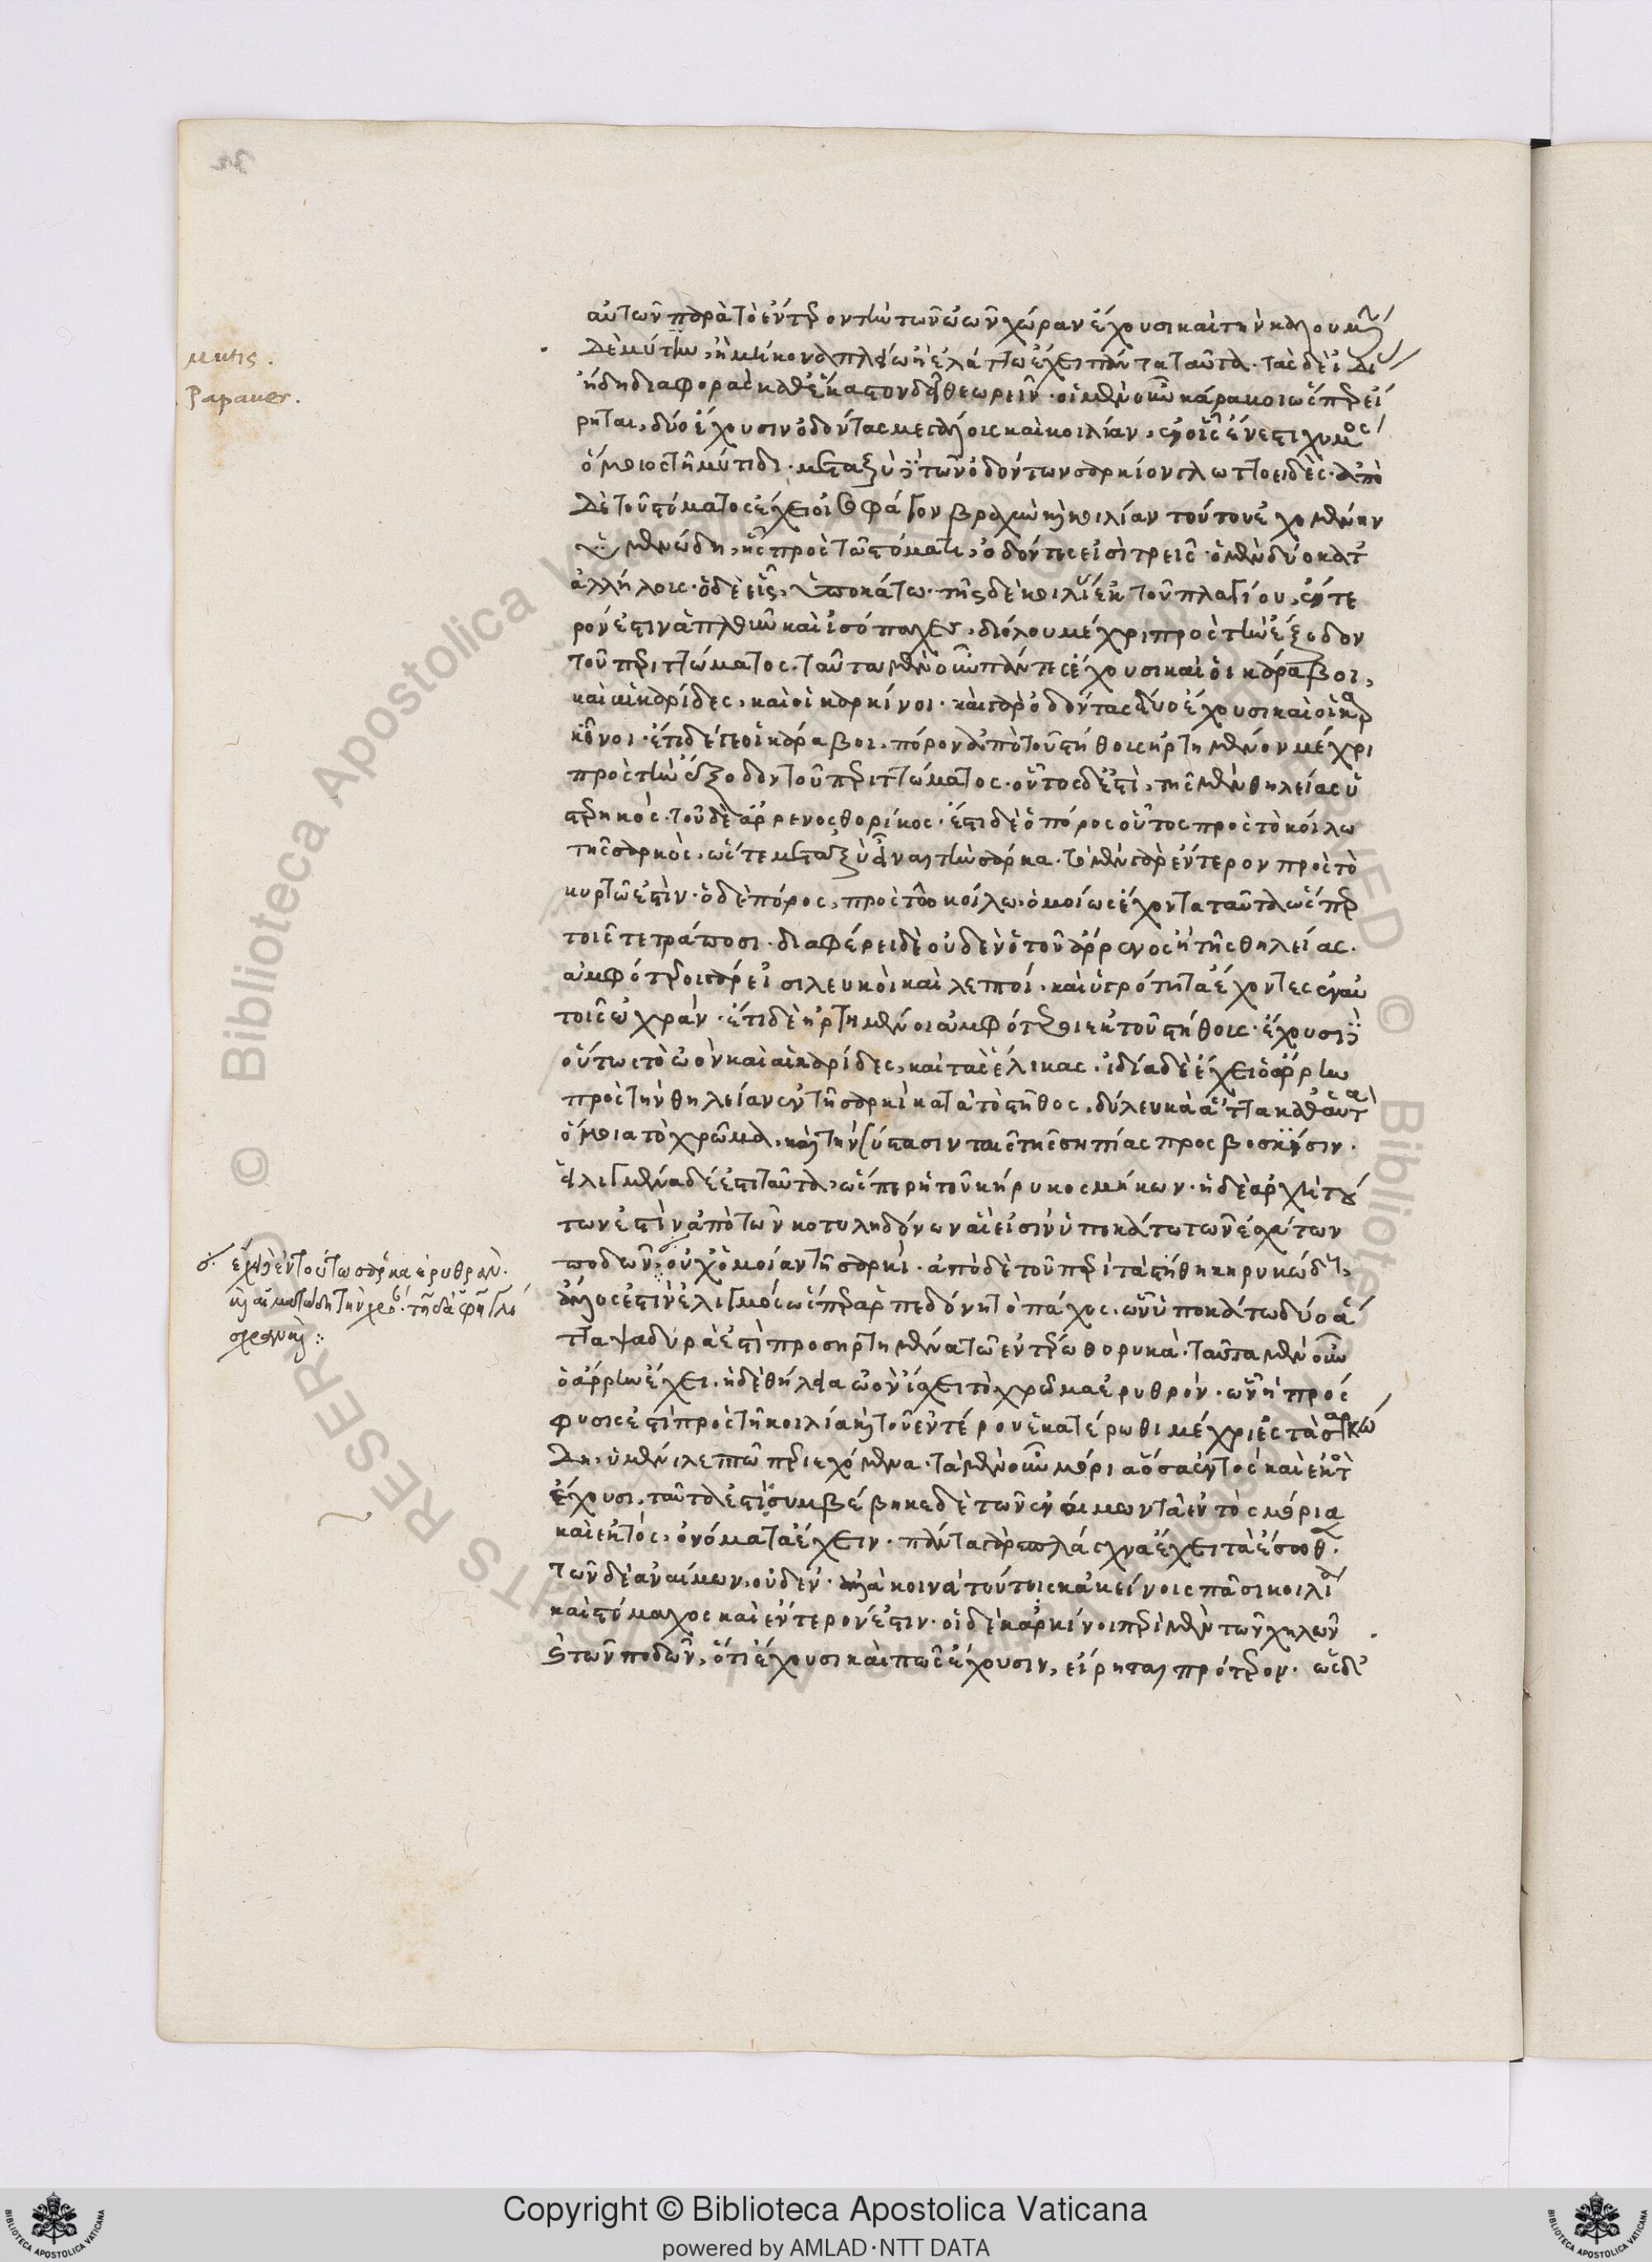 mutis.
Papauer.
αὐτῶν παρὰ τὸ ἔντερον τὴν τῶν ὠῶν χώραν ἔχουσι καὶ τὴν καλουμένην
δὲ μύτιν, ἢ μήκονα πλείω ἢ ἐλάττω ἔχει πάντα ταῦτα. τὰς δὲ ἰδίας
ἤδη διαφορὰς καθ' ἕκαστον δεῖ θεωρεῖν. οἱ μὲν οὖν κάραβοι ὥσπερ εἴ
ρηται, δύο ἔχουσιν ὀδόντας μεγάλους καὶ κοιλίαν, ἐν οἷς ἔνεστι χυμὸς
ὅμοιος τῇ μύτιδι. μεταξὺ δὲ τῶν ὀδόντων σαρκίον γλωττοειδές. ἀπὸ
δὲ τοῦ στόματος ἔχει οἰσοφάγον βραχὺν καὶ κοιλίαν τούτου ἐχομένην
ὑμενώδη, ἧς πρὸς τῷ στόματι, ὀδόντες εἰσὶ τρεῖς. οἱ μὲν δύο κατ'
ἀλλήλους. ὁ δὲ εἷς, ὑποκάτω. τῆς δὲ κοιλίας ἐκ τοῦ πλαγίου, ἔντε
ρόν ἐστιν ἁπλοῦν καὶ ἰσόπαχες, διόλου μέχρι πρὸς τὴν ἔξοδον
τοῦ περιττώματος. ταῦτα μὲν οὖν πάντες ἔχουσι καὶ οἱ κάραβοι,
καὶ αἱ καρίδες, καὶ οἱ καρκίνοι. καὶ γὰρ ὀδόντας δύο ἔχουσι καὶ οἱ καρ
κῖνοι. ἔτι δὲ γε οἱ κάραβοι, πόρον ἀπὸ τοῦ στήθους ἠρτημένον μέχρι
πρὸς τὴν ἔξοδον τοῦ περιττώματος. οὗτος δ' ἐστὶ, τῆς μὲν θηλείας ὑ
στερικός. τοῦ δὲ ἄρρενος θορικός. ἔστι δὲ ὁ πόρος οὗτος πρὸς τὸ κοίλω
τῆς σαρκός. ὥστε μεταξὺ εἶναι τὴν σάρκα. τὸ μὲν γὰρ ἔντερον πρὸς τὸ
κυρτῶ ἐστίν. ὁ δὲ πόρος, πρὸς τῷ κοίλω. ὁμοίως ἔχοντα ταῦτα ὥσπερ
τοῖς τετράποσι. διαφέρει δὲ οὐδὲν ὁ τοῦ ἄρρενος ἢ τῆς θηλείας.
ἀμφότεροι γάρ εἰσι λευκοὶ καὶ λεπτοί. καὶ ὑγρότητα ἔχοντες ἐν αὑ
τοῖς ὠχράν. ἔτι δὲ ἠρτημένοι ἀμφότεροι ἐκ τοῦ στήθους. ἔχουσι δὲ
οὕτω τὸ ὠὸν καὶ αἱ καρίδες, καὶ τὰς ἕλικας. ἰδία δὲ ἔχει ὁ ἄρρην
πρὸς τὴν θήλειαν ἐν τῇ σαρκὶ κατὰ τὸ στῆθος, δύ λευκὰ ἄττα καθ' αὑτὰ
ὅμοια τὸ χρῶμα, καὶ τὴν σύστασιν ταῖς τῆς σηπίας προβοσκίσιν.
ἑλιγμένα δέ ἐστι ταῦτα, ὥσπερ ἡ τοῦ κήρυκος μήκων. ἡ δὲ ἀρχὴ τού
των ἐστὶν ἀπὸ τῶν κοτυληδόνων αἵ εἰσιν ὑποκάτω τῶν ἐσχάτων
ποδῶν. οὐχ ὁμοίαν τῇ σαρκί. ἀπὸ δὲ τοῦ περὶ τὰ στήθη κηρυκώδους
ἄλλος ἐστὶν ἑλιγμός ὥσπερ ἁρπεδόνη τὸ πάχος. ὧν ὑποκάτω δύο ἄ
ττα ψαδυρά ἐστι προσηρτημένα τῷ ἐντέρω θορικά. ταῦτα μὲν οὖν
ὁ ἄρρην ἔχει. ἡ δὲ θήλεια ὠὸν ἴσχει τὸ χρῶμα ἐρυθρόν. ὧν ἡ πρόσ
φυσίς ἐστι πρὸς τῇ κοιλία καὶ τοῦ ἐντέρου ἑκατέρωθι μέχρι εἰς τὰ σαρκώ
δη. ὑμένι λεπτῶ περιεχόμενα. τὰ μὲν οὖν μόρια ὅσα ἐντὸς καὶ ἐκτὸς
ἔχουσι, ταῦτά ἐστι. συμβέβηκε δὲ τῶν ἐναίμων τὰ ἐντὸς μόρια
καὶ ἐκτός, ὀνόματα ἔχειν. πάντα γὰρ σπλάγχνα ἔχει τὰ ἔσωθεν.
τῶν δὲ ἀναίμων, οὐδέν. ἀλλὰ κοινὰ τούτοις κἀκείνοις πᾶσι κοιλία
καὶ στόμαχος καὶ ἔντερόν ἐστιν. οἱ δὲ καρκίνοι περὶ μὲν τῶν χηλῶν
καὶ τῶν ποδῶν, ὅτι ἔχουσι καὶ πῶς ἔχουσιν, εἴρηται πρότερον. ὡς δ'
ἔχει δὲ ἐν τούτω σάρκα ἐρυθράν.
καὶ αἱματώδη τὴν χρόαν. τῇ δὲ ἁφῇ γλί
σχραν καὶ
Copyright © Biblioteca Apostolica Vaticana
powered by AMLAD·NTT DATA